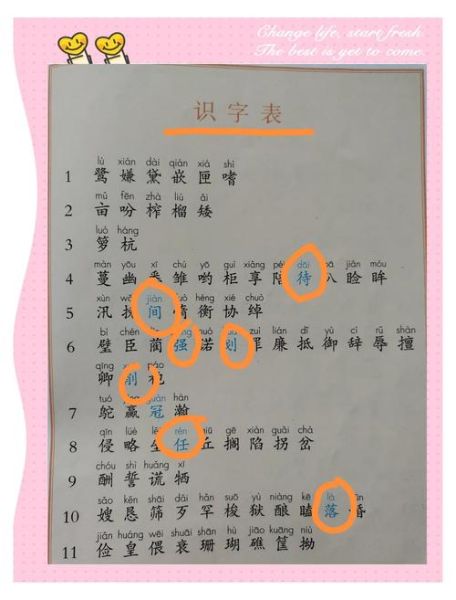 Change life, start fresh
The best is yet to come.
识字表
lù xián dài qiàn xiá shì
1 鹭嫌黛嵌匣嗜
mǔ fēn zhà liú ǎi
2 亩吩榨榴矮
luó háng
3 萝杭
màn yōu xī chú yō guì xiǎng péi dāi bā jiǎn móu
4 蔓幽悉雏哟柜享陪待八睑眸
xùn jiàn héng xié chuò
5 汛间衡协绰
bì chén qiǎng nuò zuì lián dǐ yù cí rǔ shàn
6 璧臣蔺强诺划罪廉抵御辞辱擅
qīng páo
卿削袍
tuó guàn hàn
7 鸵赢冠瀚
qīn lüè rén qiū gē xiàn guǎi chà
8 侵略任丘搁陷拐岔
chóu shì huǎng xī
9 酬誓谎牺
sǎo kěn shāi dǎi hǎn suō yù niàng kē là
10 嫂恳筛歹罕梭狱酿瞌落
jiǎn huáng wēi shuāi shān hú jiāo kuāng niù
11 俭皇偎衰珊瑚礁筐拗